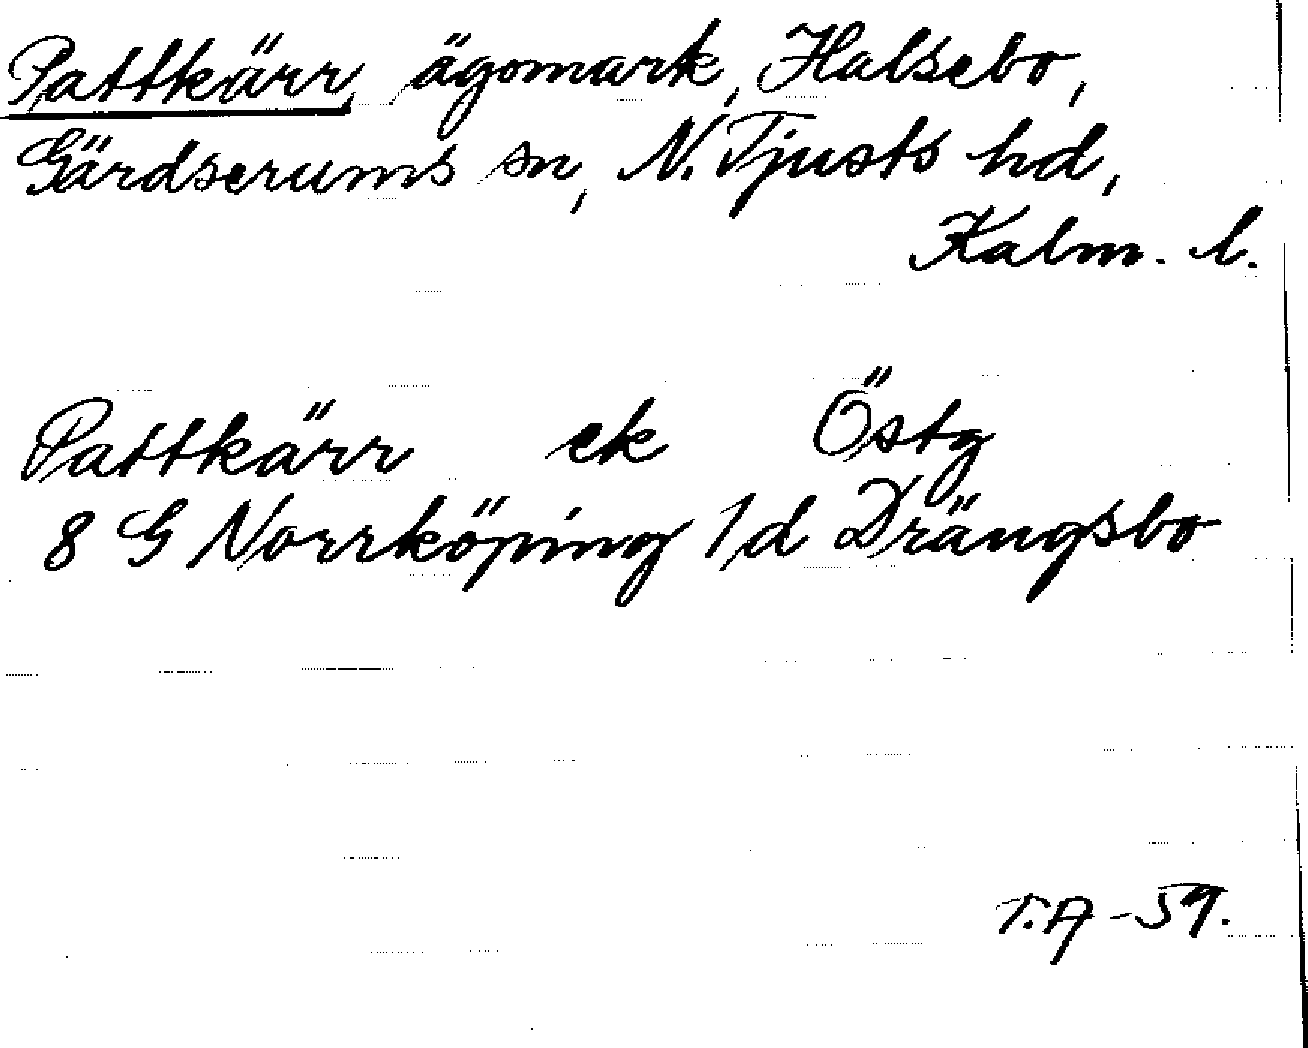 Pattkärr, ägomark, Halsebo,
Gärdserums sn, N. Tjusts hd,
Kalm. l.
Pattkärr ek Östg
8 G Norrköping 1d Drängsbo
T.A -59.